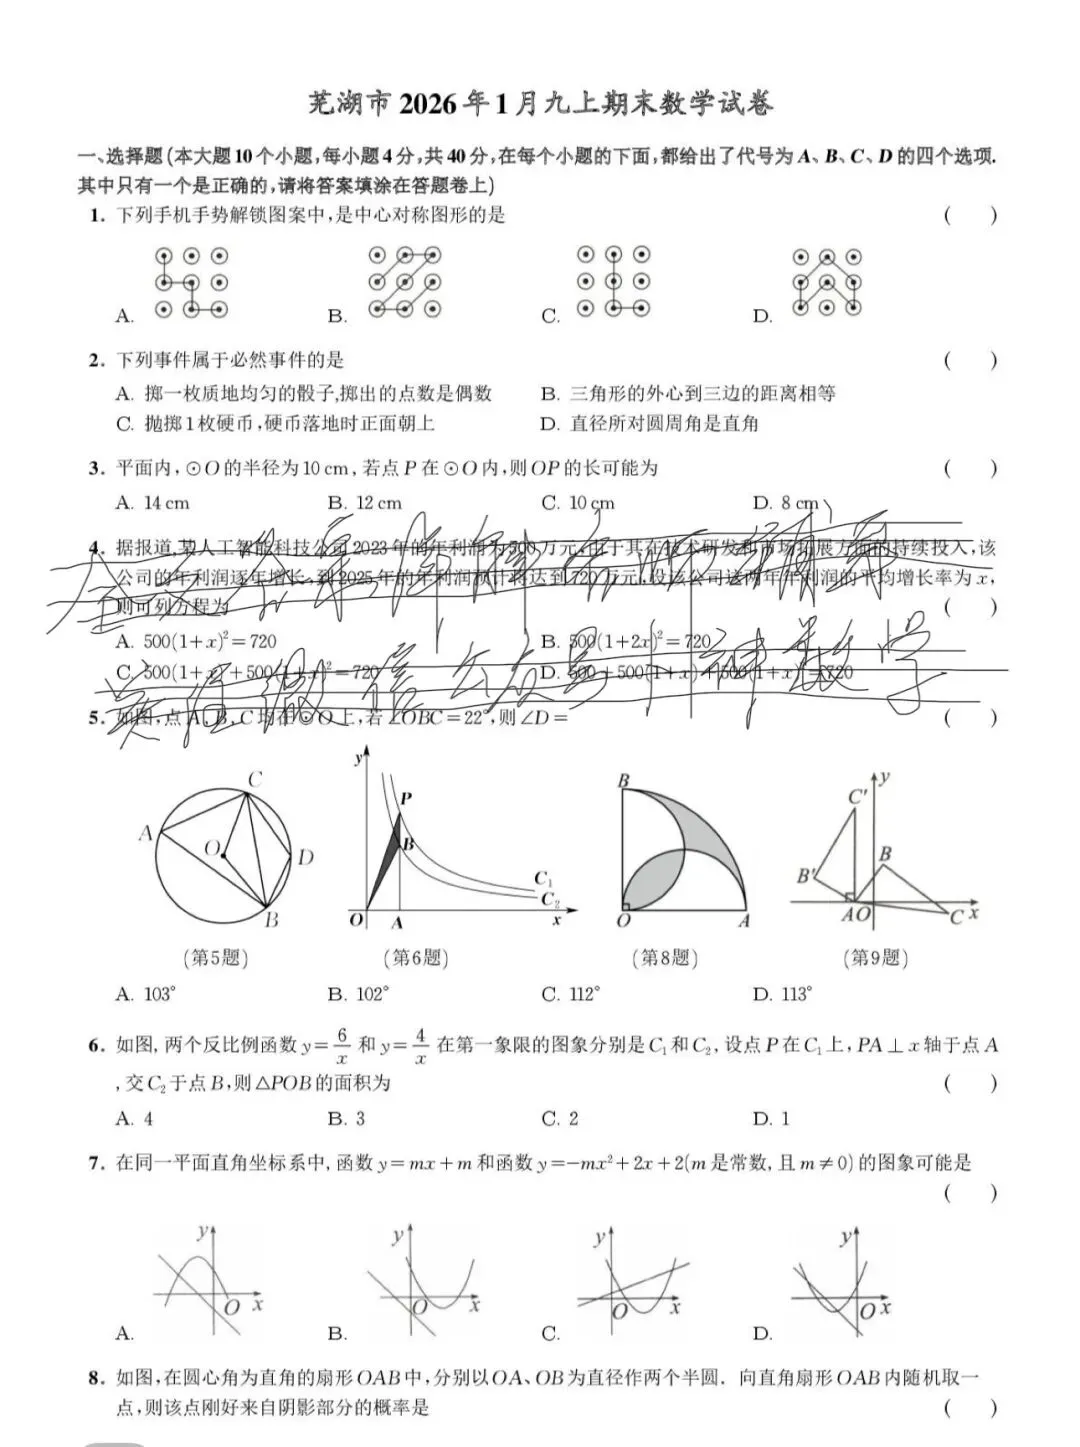 芜湖市2026年1月九上期末数学试卷
一、选择题(本大题10个小题,每小题4分,共40分,在每个小题的下面,都给出了代号为A、B、C、D的四个选项.
其中只有一个是正确的,请将答案填涂在答题卷上)
1. 下列手机手势解锁图案中,是中心对称图形的是 ( )
A. B. C. D.
2. 下列事件属于必然事件的是 ( )
A. 掷一枚质地均匀的骰子,掷出的点数是偶数 B. 三角形的外心到三边的距离相等
C. 抛掷1枚硬币,硬币落地时正面朝上 D. 直径所对圆周角是直角
3. 平面内,⊙O的半径为10 cm,若点P在⊙O内,则OP的长可能为 ( )
A. 14 cm B. 12 cm C. 10 cm D. 8 cm
4. 据报道,某人工智能科技公司2023年的年利润为500万元,由于其在技术研发和市场拓展方面的持续投入,该
公司的年利润逐年增长,到2025年的年利润预计将达到720万元,设该公司这两年年利润的平均增长率为x,
则可列方程为 ( )
A. 500(1+x)²=720 B. 500(1+2x)²=720
C. 500(1+x)+500(1+x)²=720 D. 500+500(1+x)+500(1+x)²=720
5. 如图,点A、B、C均在⊙O上,若∠OBC=22°,则∠D= ( )
A B C D O
y P B C₁ C₂ O A x
B O A
y C′ B B′ A O C x
(第5题) (第6题) (第8题) (第9题)
A. 103° B. 102° C. 112° D. 113°
6. 如图,两个反比例函数y=6/x和y=4/x在第一象限的图象分别是C₁和C₂,设点P在C₁上,PA⊥x轴于点A
,交C₂于点B,则△POB的面积为 ( )
A. 4 B. 3 C. 2 D. 1
7. 在同一平面直角坐标系中,函数y=mx+m和函数y=-mx²+2x+2(m是常数,且m≠0)的图象可能是
( )
y O x y O x y O x y O x
A. B. C. D.
8. 如图,在圆心角为直角的扇形OAB中,分别以OA、OB为直径作两个半圆. 向直角扇形OAB内随机取一
点,则该点刚好来自阴影部分的概率是 ( )